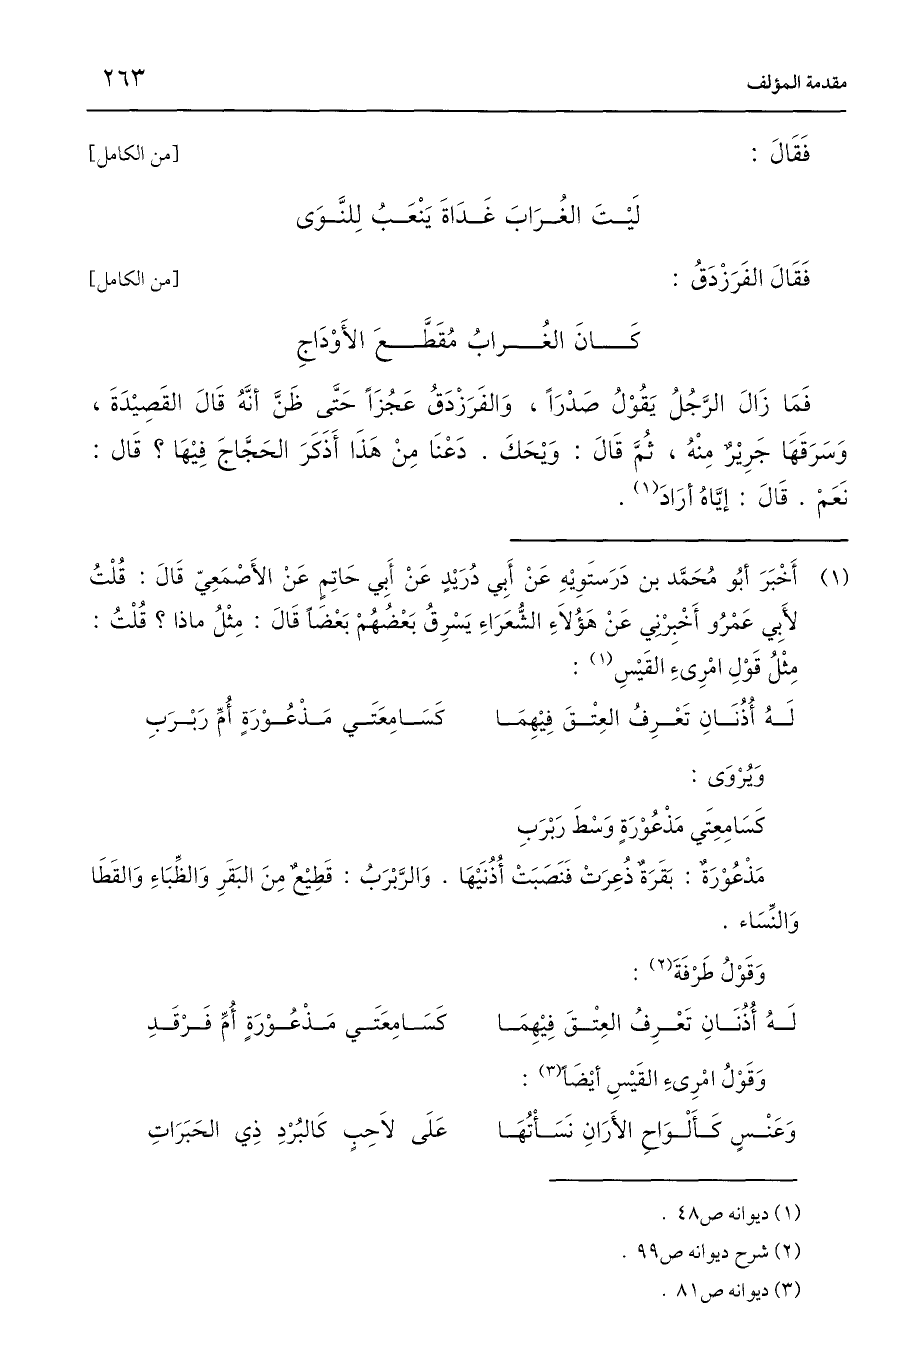 مقدمة المؤلف ٢٦٣
فَقَالَ : [من الكامل]
لَيْتَ الغُرَابَ غَدَاةَ يَنْعَبُ لِلنَّوَى
فَقَالَ الفَرَزْدَقُ : [من الكامل]
كَانَ الغُرابُ مُقَطَّعَ الأَوْدَاجِ
فَمَا زَالَ الرَّجُلُ يَقُوْلُ صَدْرَاً ، وَالفَرَزْدَقُ عَجُزَاً حَتَّى ظَنَّ أنَّهُ قَالَ القَصِيْدَةَ ،
وَسَرَقَهَا جَرِيْرٌ مِنْهُ ، ثُمَّ قَالَ : وَيْحَكَ . دَعْنَا مِنْ هَذَا أَذَكَرَ الحَجَّاجَ فِيْهَا ؟ قَال :
نَعَمْ . قَالَ : إيَّاهُ أرَادَ(١) .
(١) أَخْبَرَ أبُو مُحَمَّد بن دَرَستَويْهِ عَنْ أَبِي دُرَيْدٍ عَنْ أَبِي حَاتِمٍ عَنْ الأَصْمَعِيّ قَالَ : قُلْتُ
لأَبِي عَمْرُو أَخْبِرْنِي عَنْ هَؤُلاَءِ الشُّعَرَاءِ يَسْرِقُ بَعْضُهُمْ بَعْضَاً قَالَ : مِثْلُ ماذا ؟ قُلْتُ :
مِثْلُ قَوْلِ امْرِىءِ القَيْسِ(١) :
لَهُ أُذُنَانِ تَعْرِفُ العِتْقَ فِيْهِمَا كَسَامِعَتَي مَذْعُوْرَةٍ أُمِّ رَبْرَبِ
وَيُرْوَى :
كَسَامِعِتَي مَذْعُوْرَةٍ وَسْطَ رَبْرَبِ
مَذْعُوْرَةٌ : بَقَرَةٌ ذُعِرَتْ فَنَصَبَتْ أُذُنَيْهَا . وَالرَّبْرَبُ : قَطِيْعٌ مِنَ البَقَرِ وَالظِّبَاءِ وَالقَطَا
وَالنِّسَاء .
وَقَوْلُ طَرْفَةَ(٢) :
لَهُ أُذُنَانِ تَعْرِفُ العِتْقَ فِيْهِمَا كَسَامِعَتَي مَذْعُوْرَةٍ أُمِّ فَرْقَدِ
وَقَوْلُ امْرِىءِ القَيْسِ أيْضَاً(٣) :
وَعَنْسٍ كَأَلْوَاحِ الأَرَانِ نَسَأْتُهَا عَلَى لاَحِبٍ كَالبُرْدِ ذِي الحَبَرَاتِ
(١) ديوانه ص٤٨ .
(٢) شرح ديوانه ص٩٩ .
(٣) ديوانه ص٨١ .